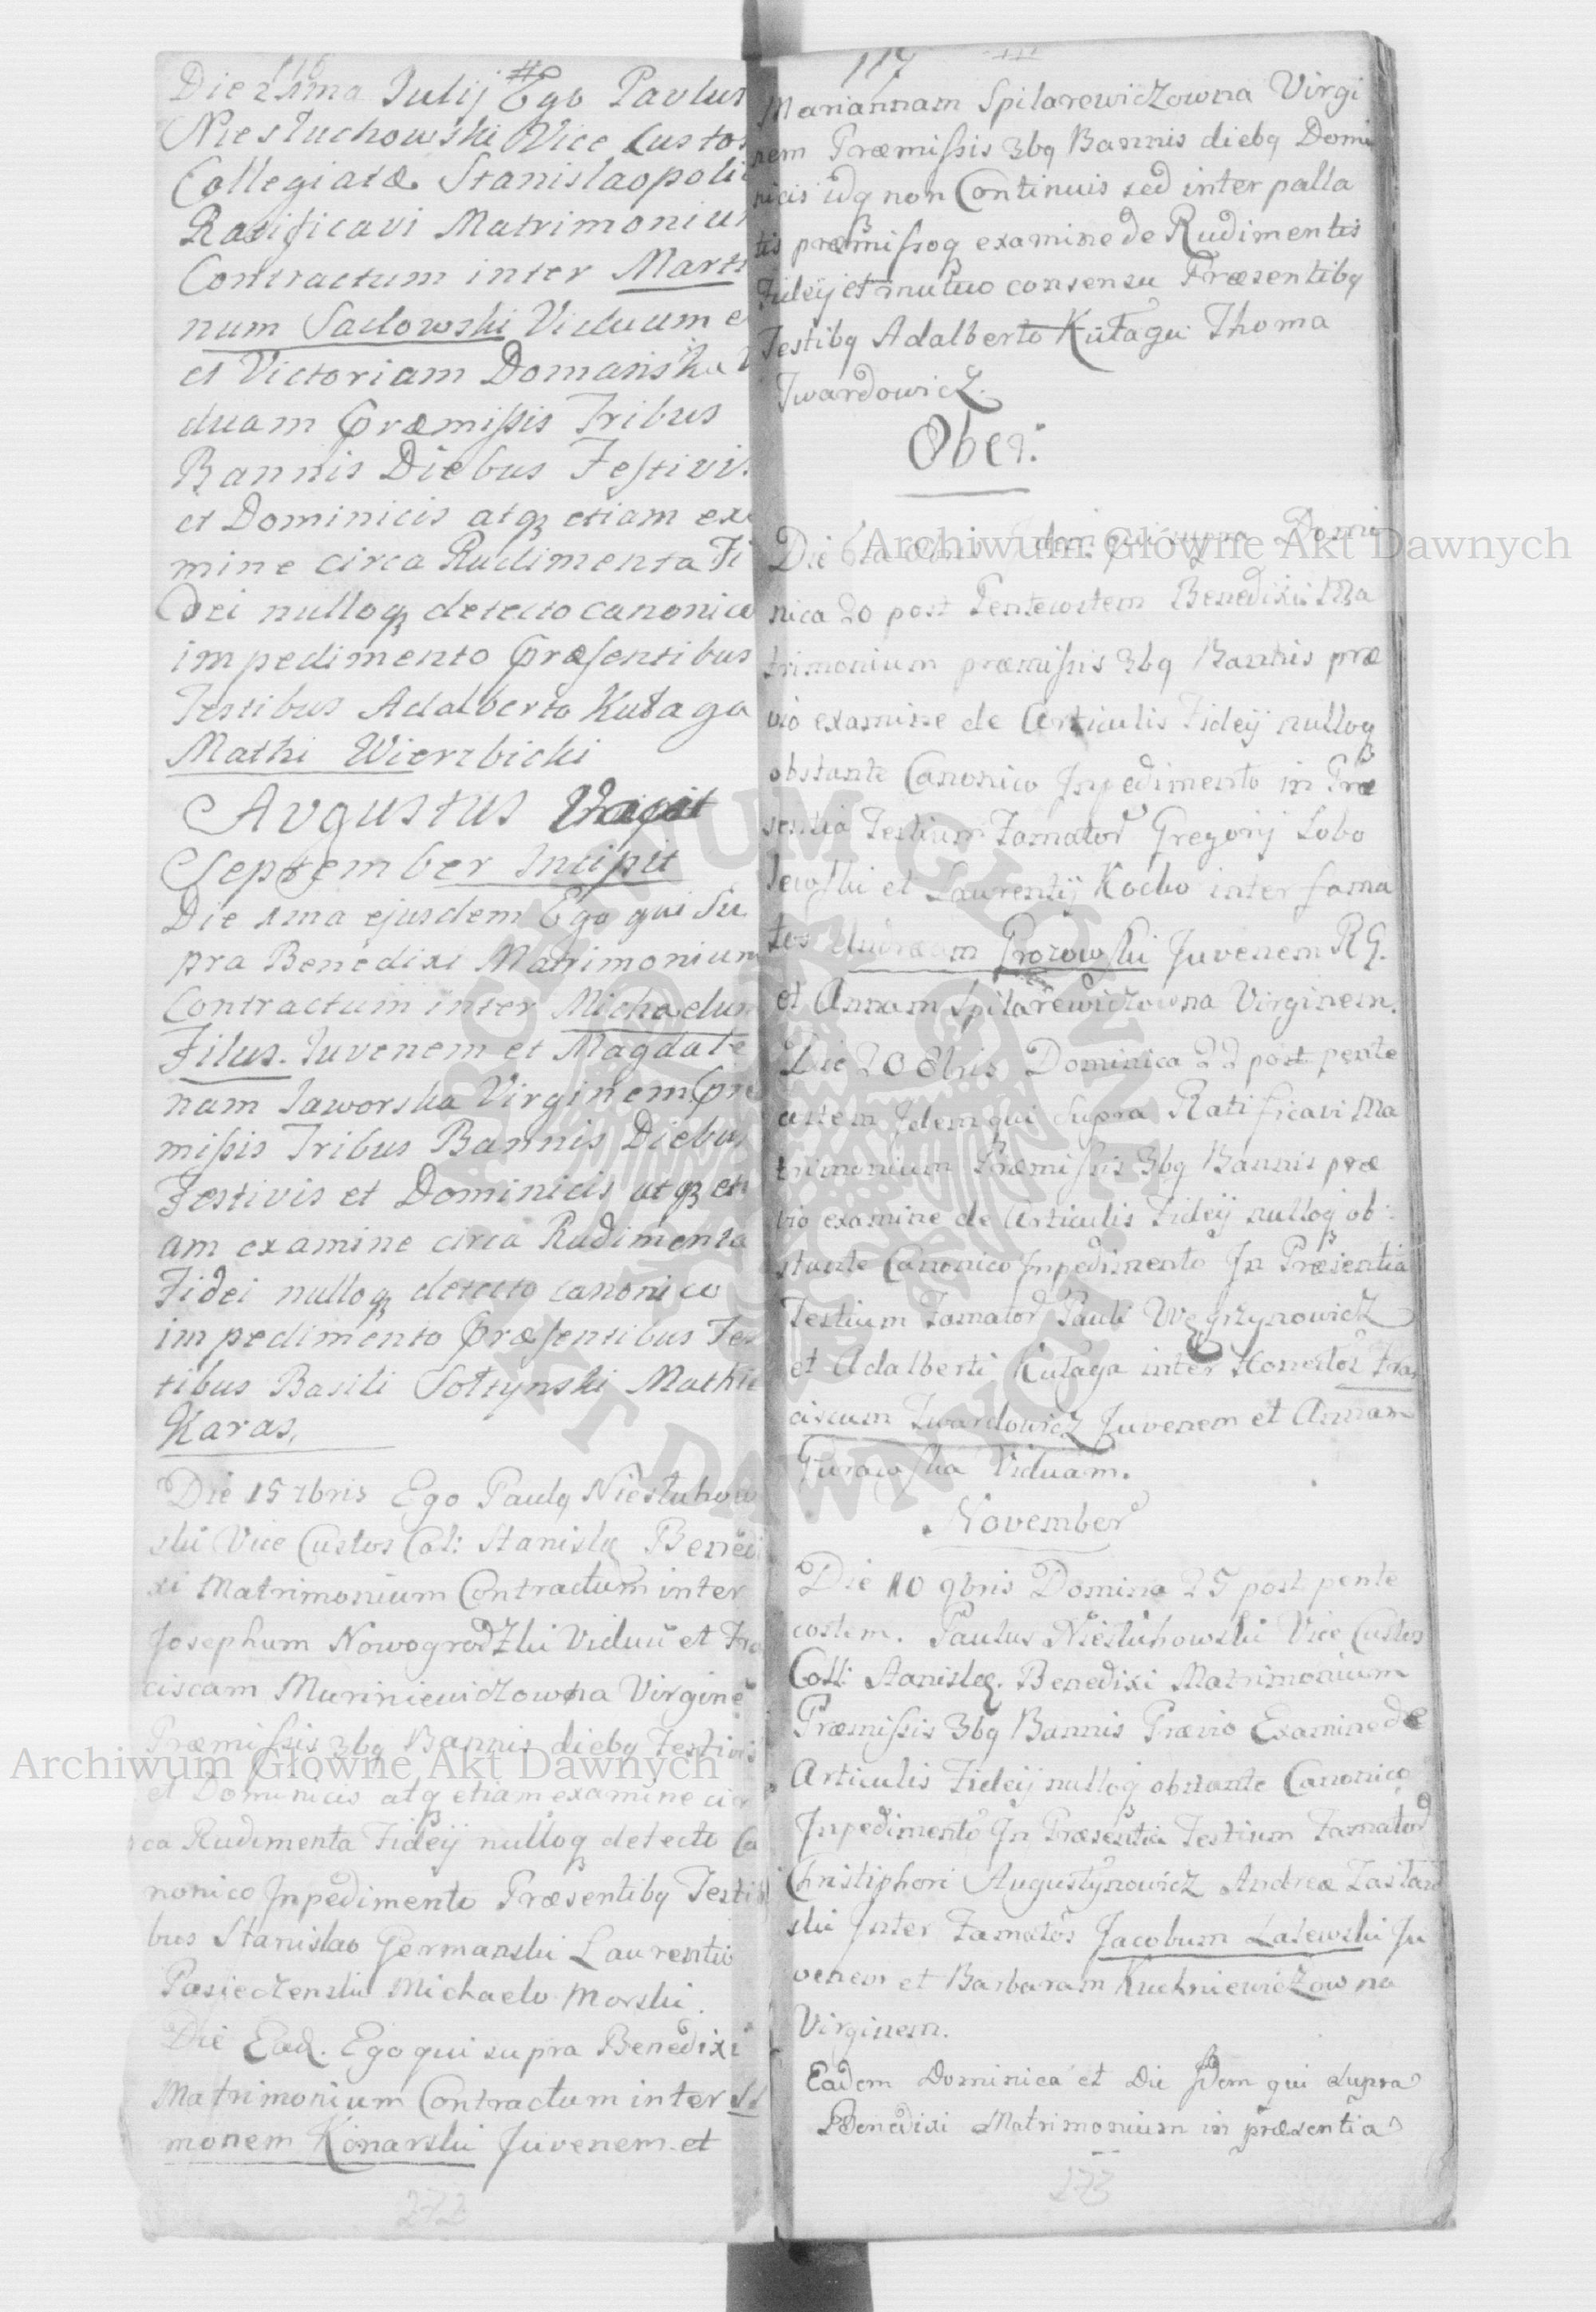 116
Die 21ma Julij Ego Paulus
Niesłuchowski Vice Custos
Collegiatæ Stanislaopoli
Ratificavi Matrimoniu
Contractum inter Marti
num Sadowski Viduum e
et Victoriam Domańska V
duam Præmissis Tribus
Bannis Diebus Festivi.
et Dominicis atq etiam exa
mine circa Rudimenta Fi
Dei nulloq detecto canonico
impedimento Præsentibus
Testibus Adalberto Kułaga
Mathi Wierzbicki
Avgustus
September Incipit
Die 1ma ejusdem Ego qui Su
pra Benedixi Matrimonium
Contractum inter Michaelum
Filus. Iuvenem et Magdale
nam Jaworska Virginem Præ
missis Tribus Bannis Diebus
Festivis et Dominicis atq eti
am examine circa Rudimenta
Fidei nulloq detecto canonico
impedimento Præsentibus Tes
tibus Basili Sołtynski Mathie
Karas,
Die 15 7bris Ego Paulq Niesłuhow
ski Vice Custos Col: Stanislę Benedi
xi Matrimonium Contractum inter
Josephum Nowogrodzki Viduū et Fra
ciscam Muriniewiczowna Virginē
Præmissis 3bq Bannis diebq Festivis
et Dominicis atq etiam examine cir
ca Rudimenta Fideij nulloq detecto Ca
nonico Jnpedimento Præsentibq Testi
bus Stanislao Germanski Laurentio
Pasieczenski Michaelo Morski.
Die Ead. Ego qui supra Benedixi
Matrimonium Contractum inter Si
monem Konarski Juvenem et
272
117
Mariannam Spilarewiczowna Virgi
nem Præmissis 3bq Bannis diebq Domi
nicis idq non Continuis sed inter palla
tis præmissoq examine de Rudimentis
Fideij et mutuo consensu Præsentibq
Testibq Adalberto Kułaga Thoma
Twardowicz.
Ober.
Die 6ta Idem qui supra Domi
nica 20 post Pentecostem Benedixi Ma
trimonium præmissis 3bq Bannis præ
vio examine de Articulis Fideij nulloq
obstante Canonico Jnpedimento in Præ
sentia Testium Famator Gregorij Sobo
lewski et Laurentij Kocko inter fama
tos Andream Grozowski Juvenem RG.
et Annam Spilarewiczowna Virginem.
Die 20 8bris Dominica 22 post pente
costem Jdem qui Supra Ratificavi Ma
trimonium Præmissis 3bq Bannis præ
vio examine de Articulis Fideij nulloq ob:
stante Canonico Jnpedimento Jn Præsentia
Testium Famator Pauli Węgrzynowicz
et Adalberti Kułaga inter Honestos Fran
ciscum Twardowicz Juvenem et Annam
Gurawska Viduam.
November
Die 10 9bris Domina 25 post pente
costem. Paulus Niesłuhowski Vice Custos
Coll: Stanislę. Benedixi Matrimonium
Præmissis 3bq Bannis Prævio Examine de
Articulis Fideij nulloq obstante Canonico
Jnpedimento Jn Præsentia Testium Famator
Christiphori Augustynowicz Andreæ Zastaw
ski Jnter Famatos Jacobum Lasewski Ju
venem et Barbaram Kuchniewiczowna
Virginem.
Eadem Dominica et Die Jdem qui Supra
Benedixi Matrimonium in præsentia
273
Archiwum Główne Akt Dawnych
Archiwum Główne Akt Dawnych
ARCHIWUM GŁÓWNE AKT DAWNYCH